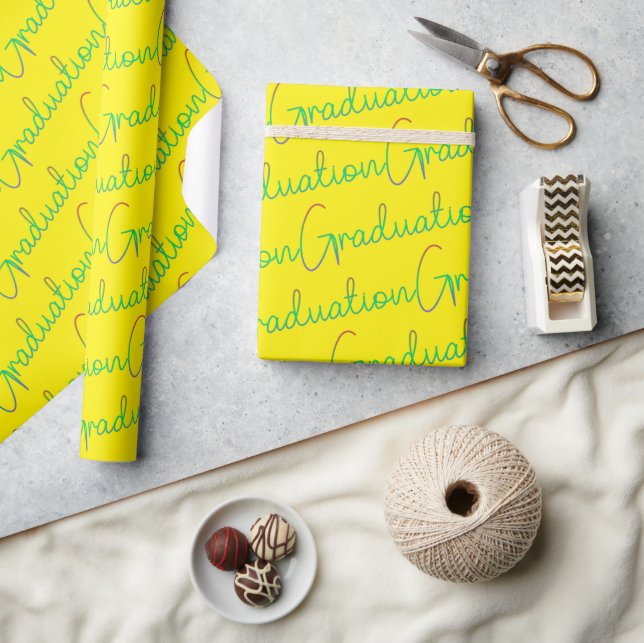 Graduation
duationGrad
onGraduation
raduationGr
Graduation
Graduation
Graduation
Graduation
Graduation